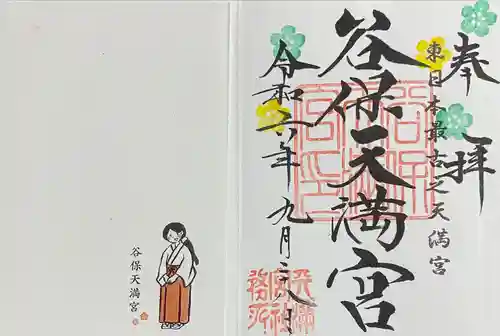 奉拝
東日本最古之天満宮
谷保天満宮
令和六年九月二十八日
天満
宮社
務所
谷保天満宮